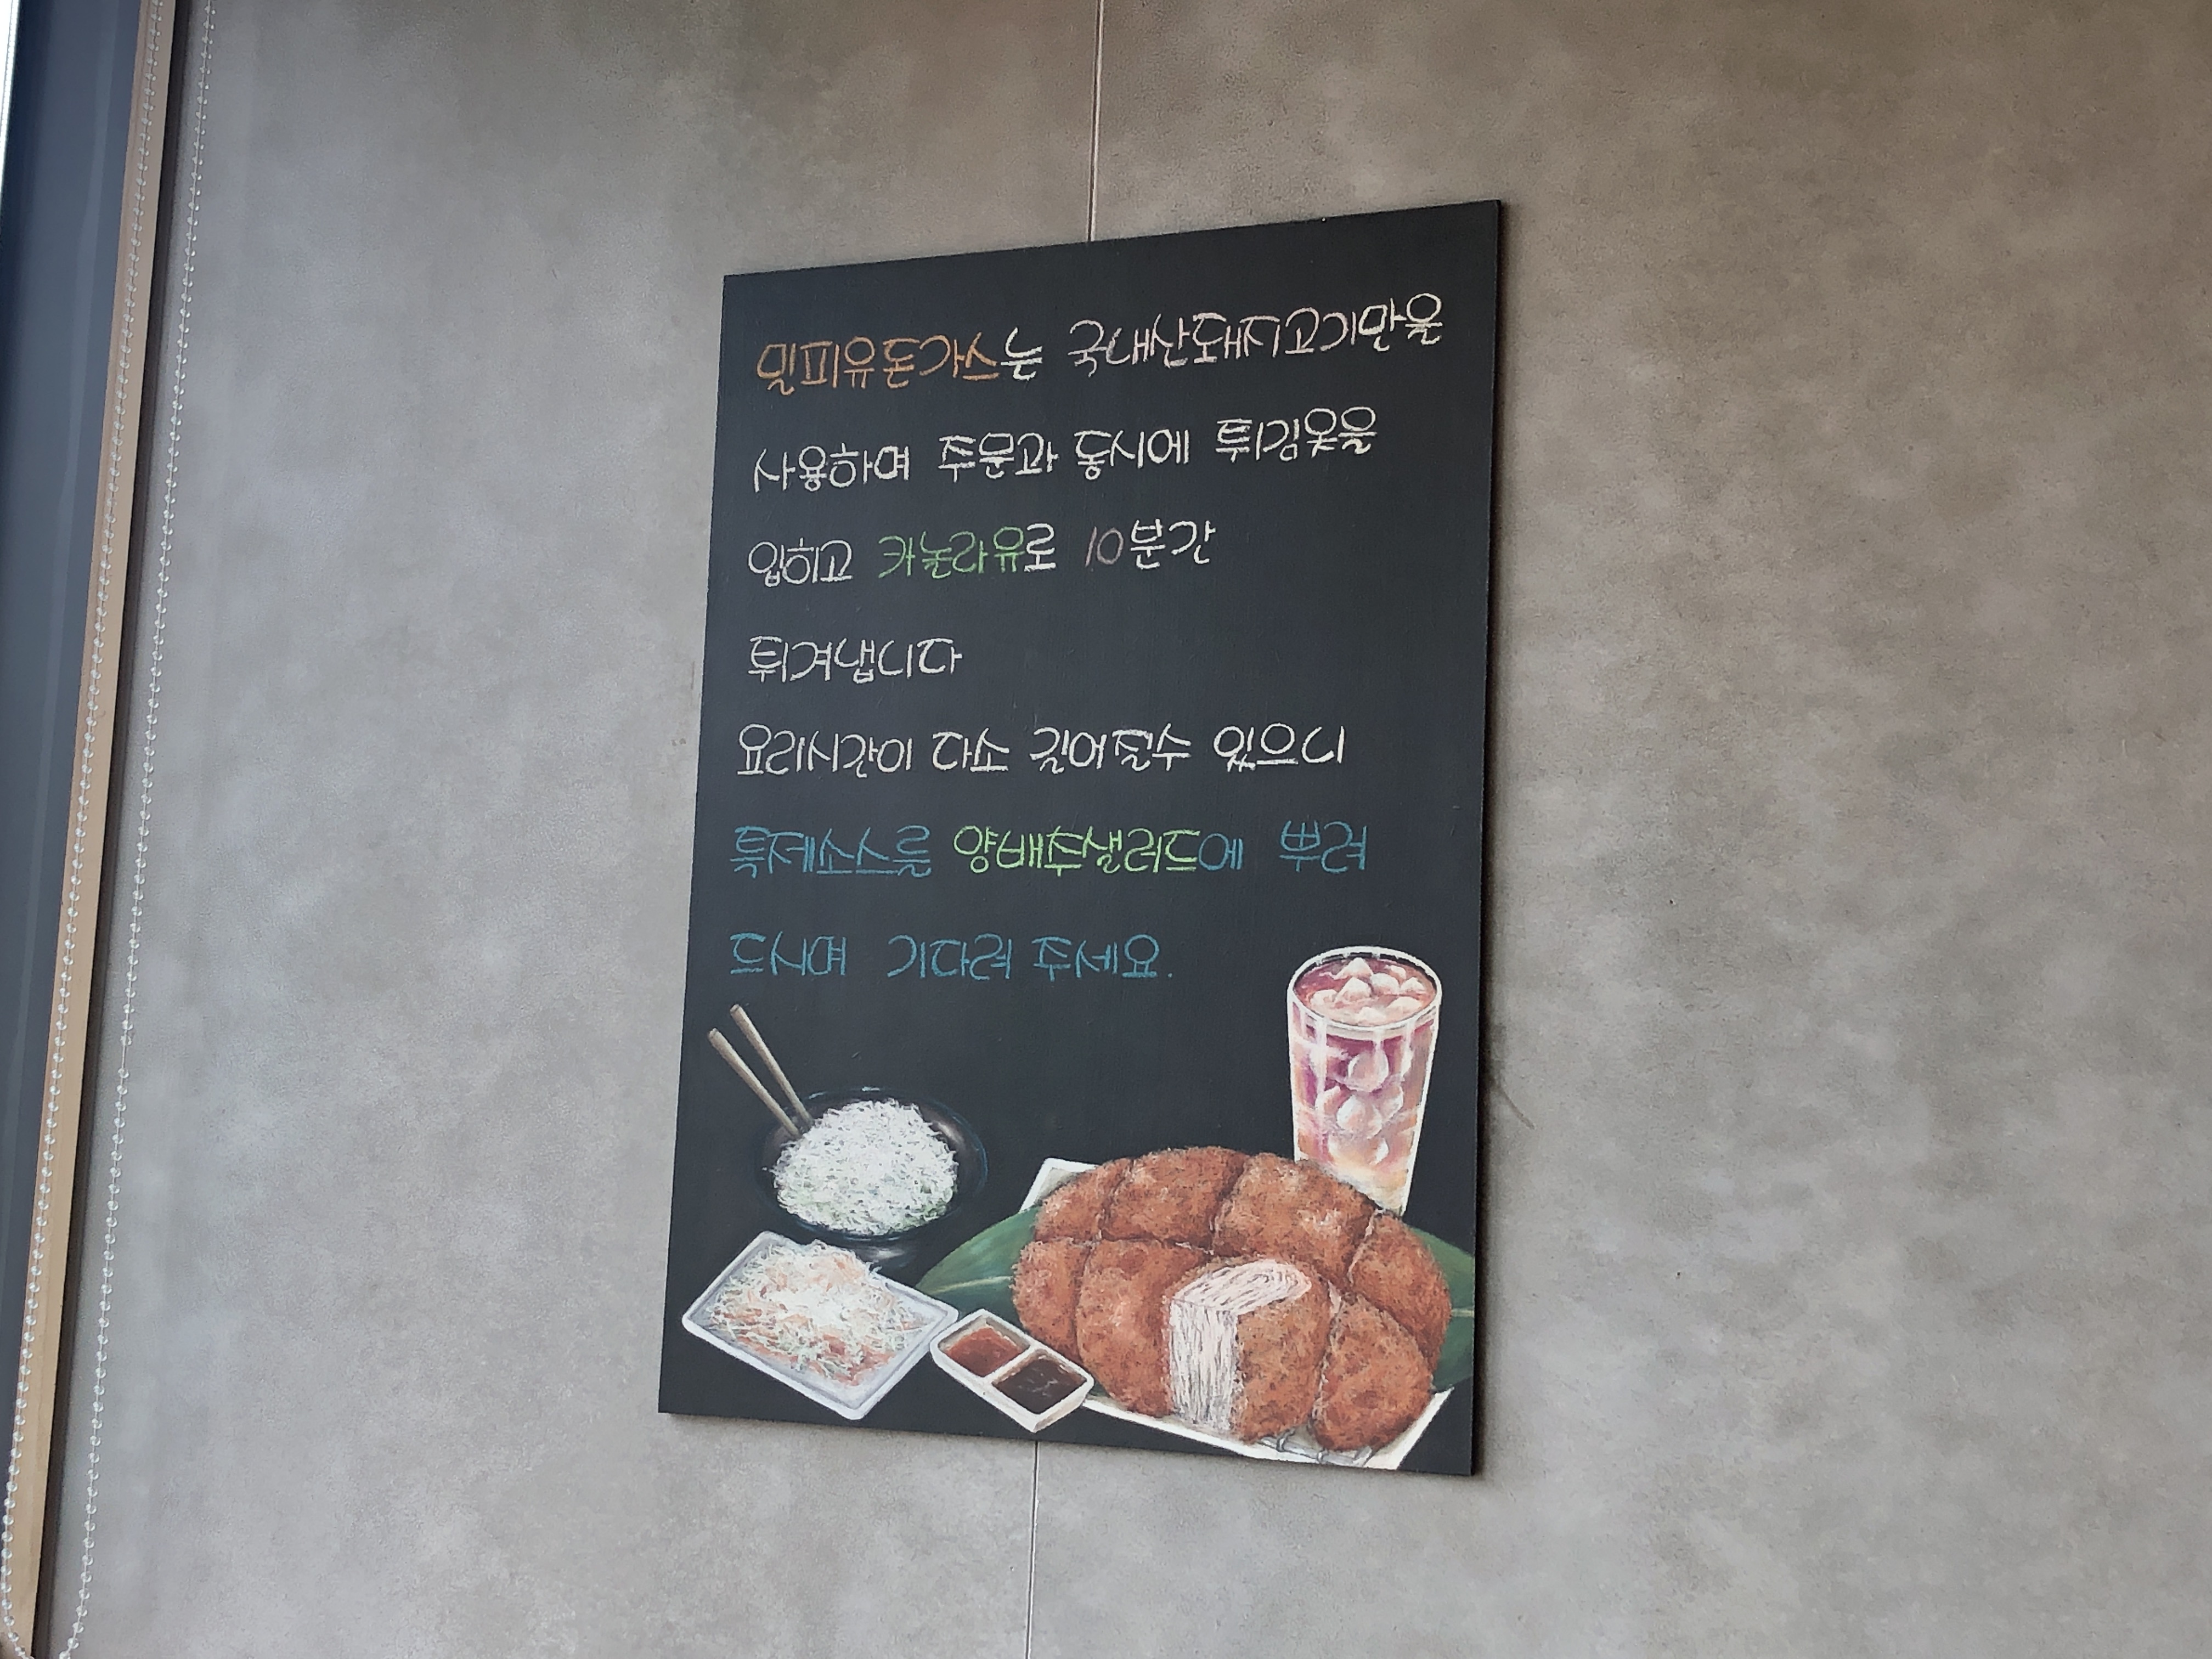 밀피유돈가스는 국내산돼지고기만을
사용하며 주문과 동시에 튀김옷을
입히고 카놀라유로 10분간
튀겨냅니다
요리시간이 다소 길어질수 있으니
특제소스를 양배추샐러드에 뿌려
드시며 기다려 주세요.